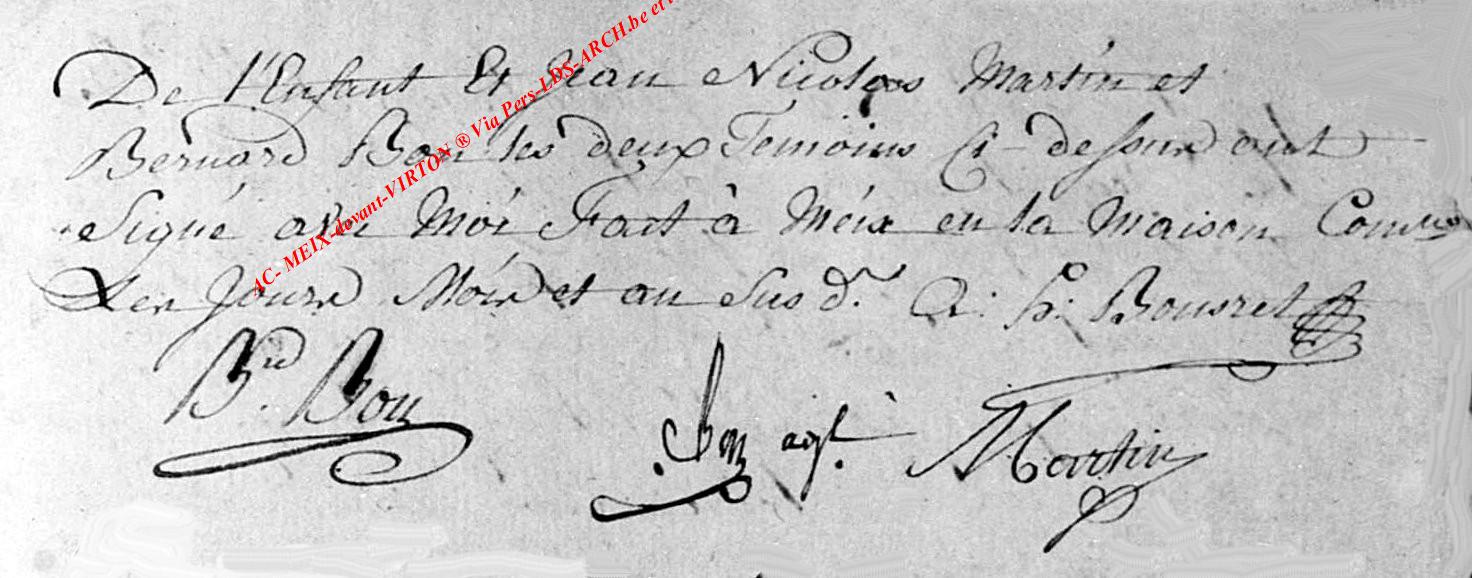 De l'Enfant Et Jean Nicolas Martin et
Bernard Bon les deux Temoins Ci-dessus ont
Signé avec Moi Fait à Méix en la Maison Comune
Les Jours Mois et an Sus d.t A: h: Bousret
B.rd Bon
Bon agt.
Martin
AC- MEIX-devant-VIRTON ® Via Pers-LDS-ARCH.be et